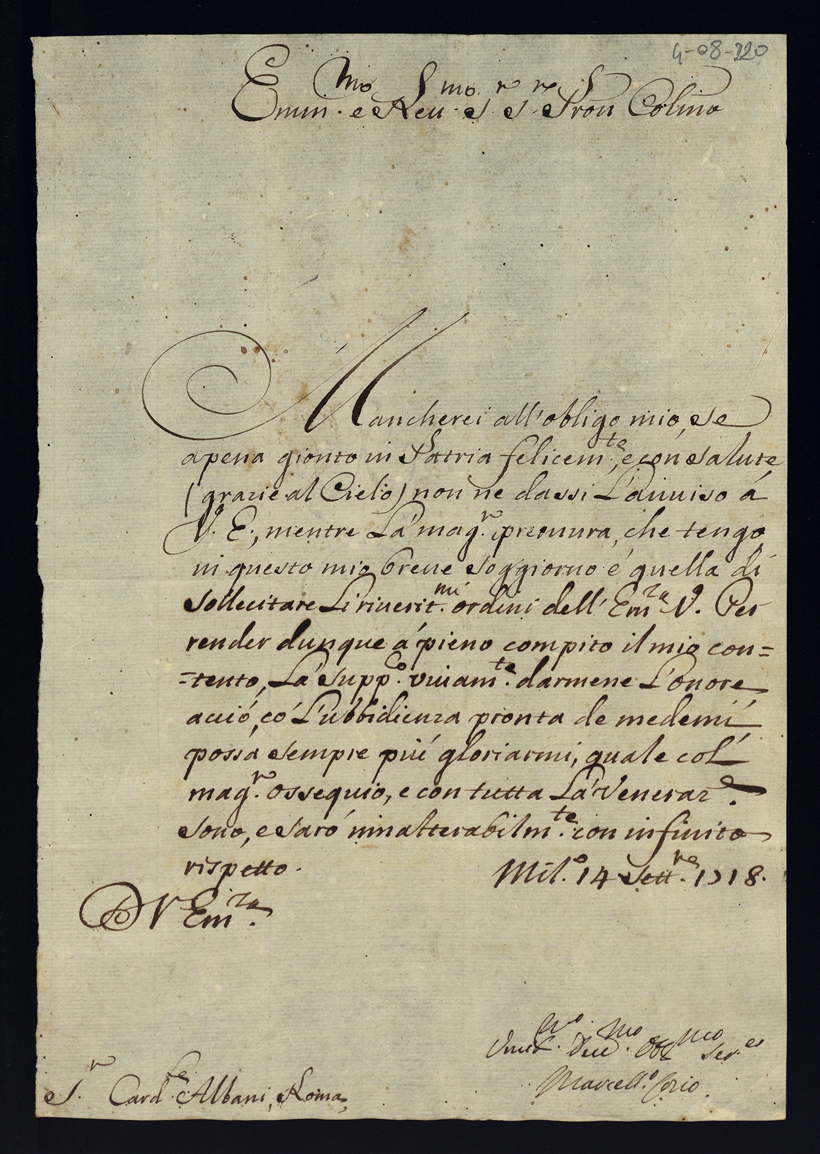 4-08-220
Emin.mo e Reu.mo S.r S.r Pron Colmo
Mancherei all'obligo mio, se
apena gionto in Patria felicem.te, e con salute
(grazie al Cielo) non ne dassi L'auuiso á
V. E., mentre La mag.r premura, che tengo
in questo mio breue soggiorno é quella di
sollecitare Li riuerit.mi ordini dell' Em.za V. Per
render dunque á pieno compito il mio con=
=tento, La supp.co viuam.te darmene L'onore
acció, có L'ubbidienza pronta de medemi
possa sempre piú gloriarmi, quale col
mag.r ossequio, e con tutta La Veneraz.e
sono, e saró innalterabilm.te con infinito
rispetto.
Mil.o 14 Sett.re 1718.
D V Em.za
Umil.mo Diu.mo Obl.mo Ser.e
Marcell.o
S.r Card.le Albani, Roma